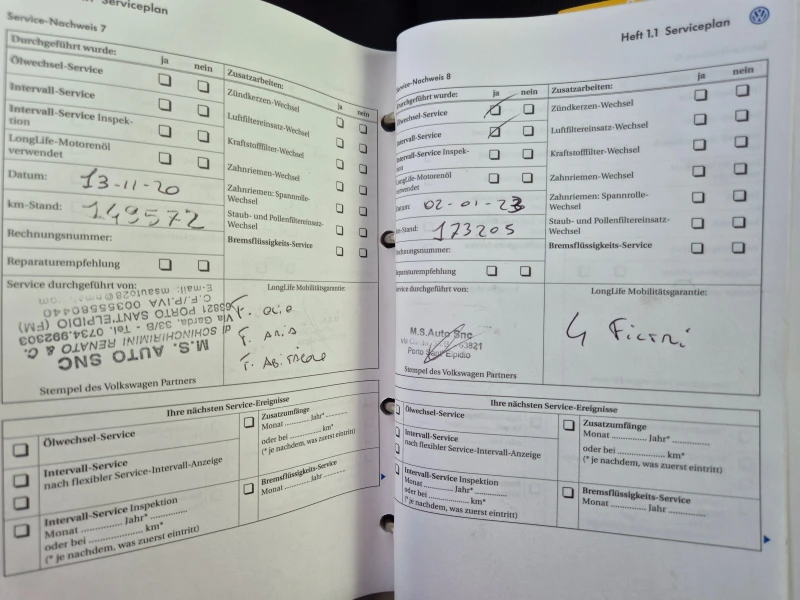 Serviceplan
Service-Nachweis 7
Durchgeführt wurde:
ja nein
Ölwechsel-Service
Intervall-Service
Intervall-Service Inspek-
tion
LongLife-Motorenöl
verwendet
Datum: 13-11-20
km-Stand: 149572
Rechnungsnummer:
Reparaturempfehlung
Zusatzarbeiten:
ja nein
Zündkerzen-Wechsel
Luftfiltereinsatz-Wechsel
Kraftstofffilter-Wechsel
Zahnriemen-Wechsel
Zahnriemen: Spannrolle-
Wechsel
Staub- und Pollenfiltereinsatz-
Wechsel
Bremsflüssigkeits-Service
Service durchgeführt von:
M.S. AUTO SNC
di SCHINCHIRIMINI RENATO & C.
Via Garda, 33/B - Tel. 0734.992303
63821 PORTO SANT'ELPIDIO (FM)
C.F./P.IVA 00355580440
E-mail: msauto28@
Stempel des Volkswagen Partners
LongLife Mobilitätsgarantie:
F. olio
F. aria
F. abitacolo
Ihre nächsten Service-Ereignisse
Ölwechsel-Service
Intervall-Service
nach flexibler Service-Intervall-Anzeige
Intervall-Service Inspektion
Monat ............... Jahr* ...............
oder bei ........................ km*
(* je nachdem, was zuerst eintritt)
Zusatzumfänge
Monat ............ Jahr* ............
oder bei ..................... km*
(* je nachdem, was zuerst eintritt)
Bremsflüssigkeits-Service
Monat ............ Jahr ............
Heft 1.1 Serviceplan
Service-Nachweis 8
Durchgeführt wurde:
ja nein
Ölwechsel-Service
Intervall-Service
Intervall-Service Inspek-
tion
LongLife-Motorenöl
verwendet
Datum: 02-01-23
km-Stand: 173205
Rechnungsnummer:
Reparaturempfehlung
Zusatzarbeiten:
ja nein
Zündkerzen-Wechsel
Luftfiltereinsatz-Wechsel
Kraftstofffilter-Wechsel
Zahnriemen-Wechsel
Zahnriemen: Spannrolle-
Wechsel
Staub- und Pollenfiltereinsatz-
Wechsel
Bremsflüssigkeits-Service
Service durchgeführt von:
M.S.Auto Snc
63821
Porto Sant'Elpidio
Stempel des Volkswagen Partners
LongLife Mobilitätsgarantie:
4 Filtri
Ihre nächsten Service-Ereignisse
Ölwechsel-Service
Intervall-Service
nach flexibler Service-Intervall-Anzeige
Intervall-Service Inspektion
Monat ............... Jahr* ...............
oder bei ........................ km*
(* je nachdem, was zuerst eintritt)
Zusatzumfänge
Monat ............ Jahr* ............
oder bei ..................... km*
(* je nachdem, was zuerst eintritt)
Bremsflüssigkeits-Service
Monat ............ Jahr ............